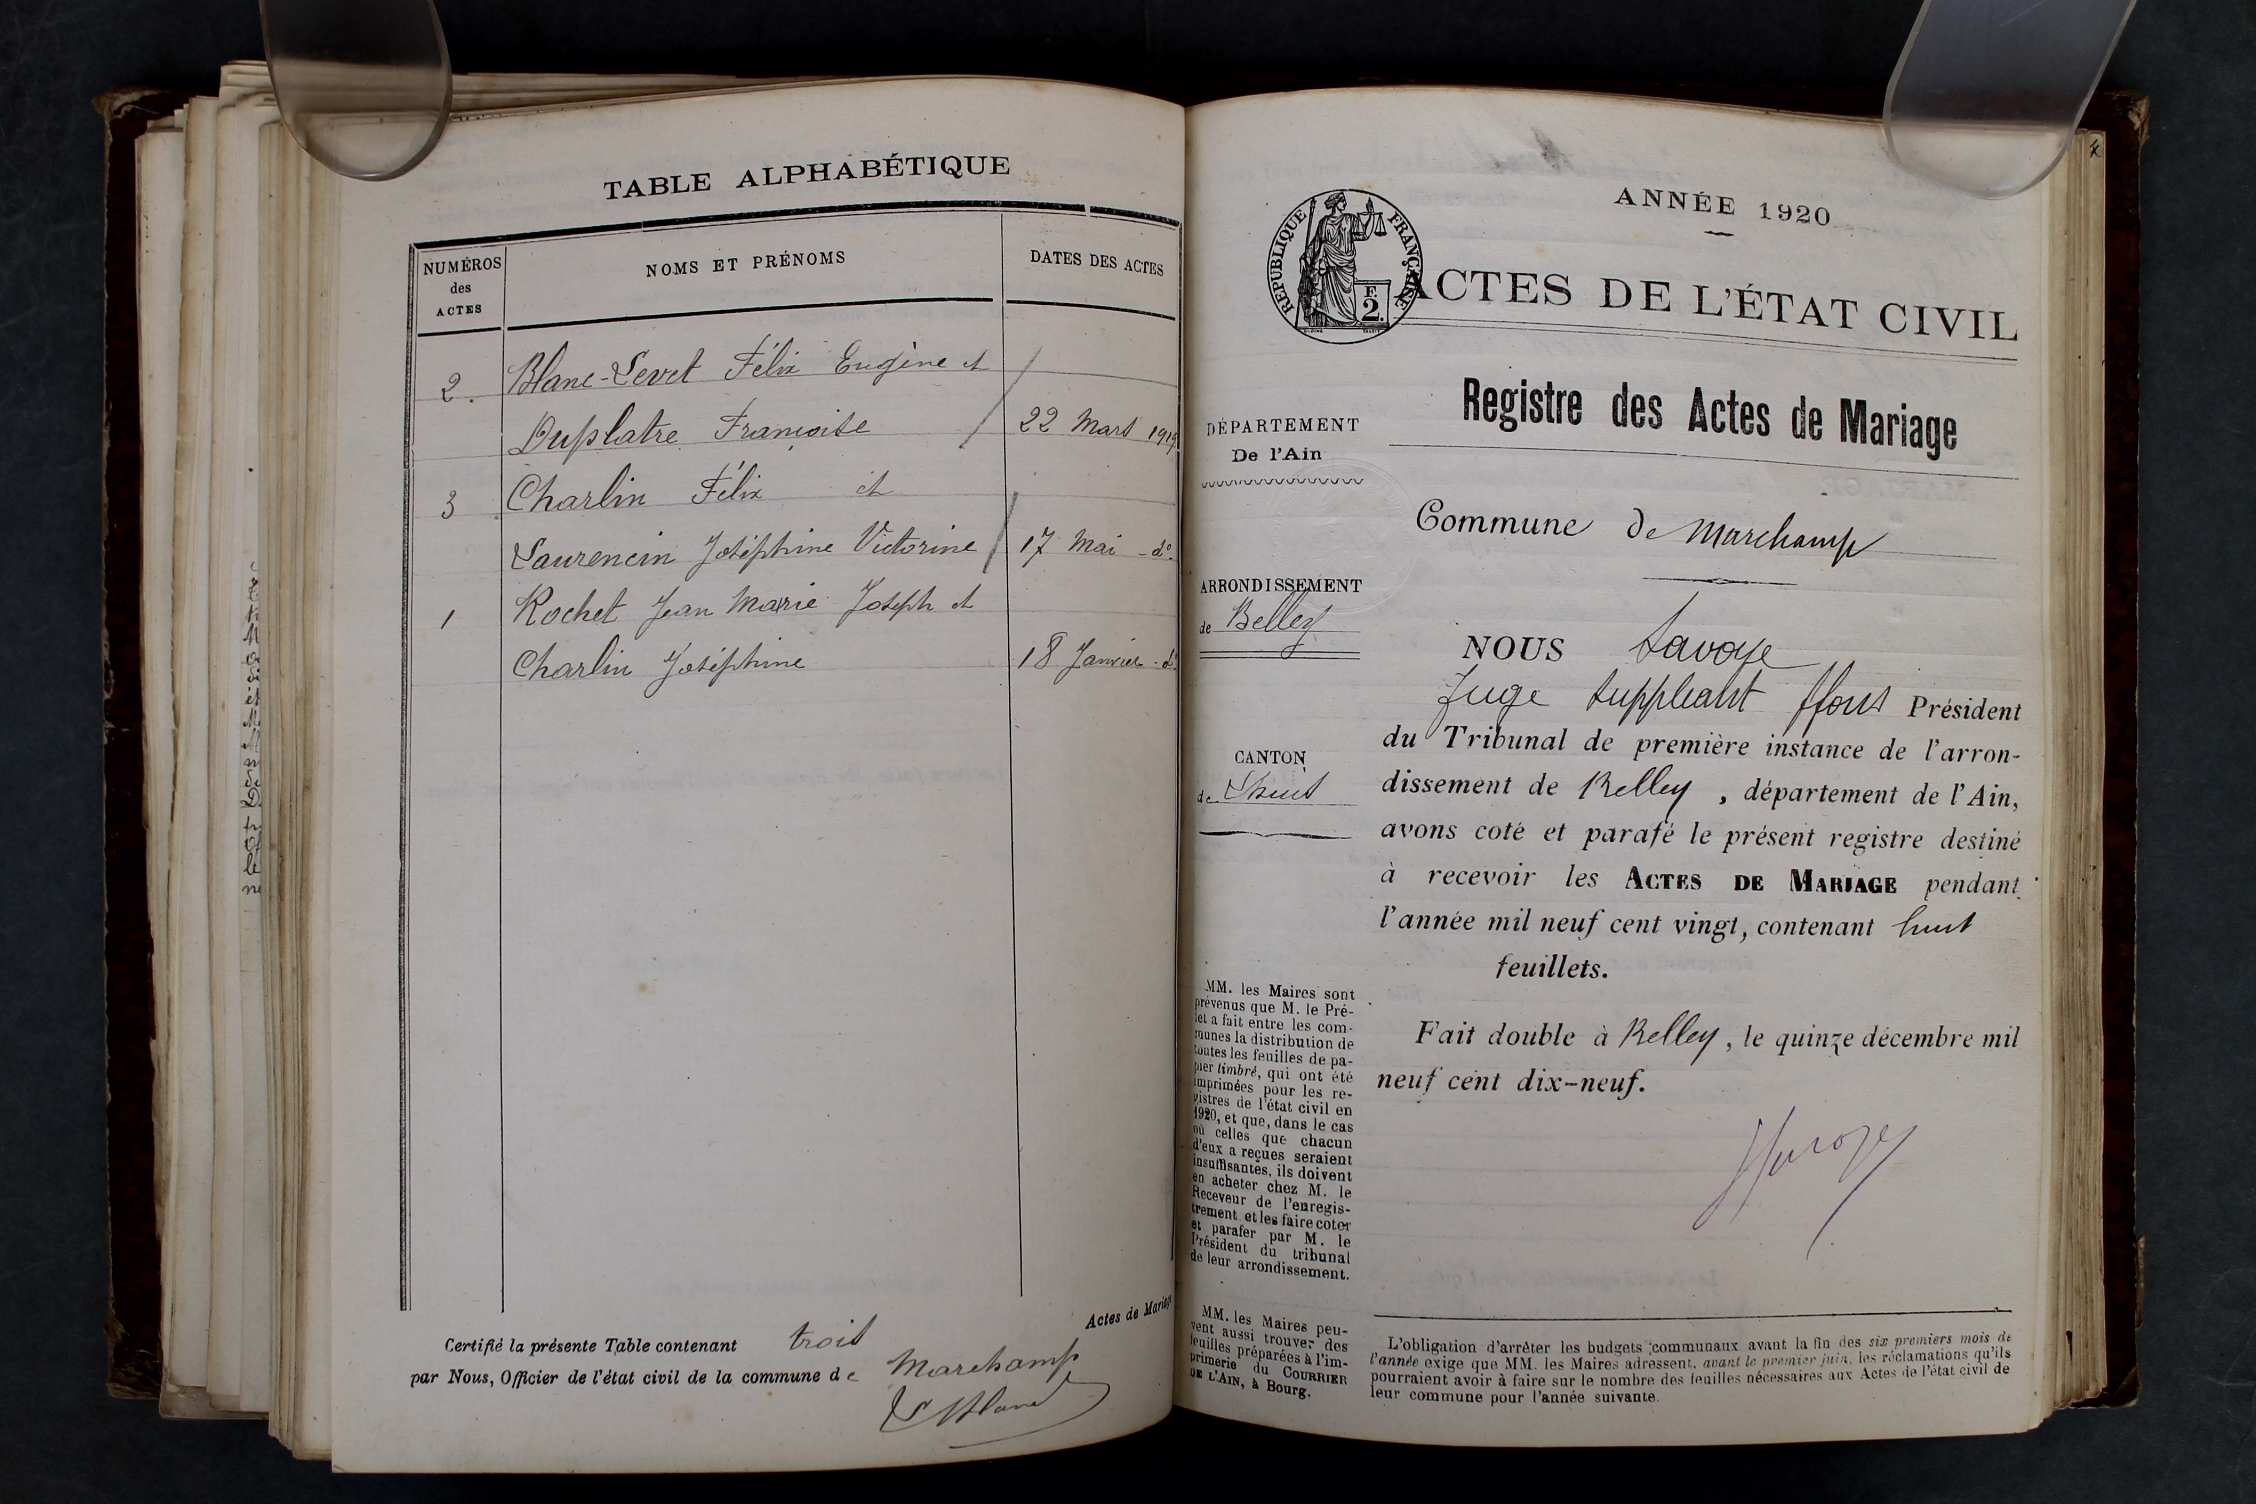 TABLE ALPHABÉTIQUE
NUMÉROS
des
ACTES
NOMS ET PRÉNOMS
DATES DES ACTES
2. Blanc-Levet Félix Eugène et
Duplatre Françoise 22 Mars 1919
3 Charlin Félix et
Laurencin Joséphine Victorine 17 Mai - do.
1 Rochet Jean Marie Joseph et
Charlin Joséphine 18 Janvier - do.
Certifié la présente Table contenant trois Actes de Mariage
par Nous, Officier de l'état civil de la commune de Marchamp
ANNÉE 1920
RÉPUBLIQUE FRANÇAISE
F.
2.
ACTES DE L'ÉTAT CIVIL
Registre des Actes de Mariage
DÉPARTEMENT
De l'Ain
Commune de Marchamp
ARRONDISSEMENT
de Belley
CANTON
de Lhuis
NOUS Savoye
Juge suppléant ffons Président
du Tribunal de première instance de l'arron-
dissement de Belley, département de l'Ain,
avons coté et parafé le présent registre destiné
à recevoir les ACTES DE MARIAGE pendant
l'année mil neuf cent vingt, contenant huit
feuillets.
Fait double à Belley, le quinze décembre mil
neuf cent dix-neuf.
MM. les Maires sont
prévenus que M. le Pré-
fet a fait entre les com-
munes la distribution de
toutes les feuilles de pa-
pier timbré, qui ont été
imprimées pour les re-
gistres de l'état civil en
1920, et que, dans le cas
où celles que chacun
d'eux a reçues seraient
insuffisantes, ils doivent
en acheter chez M. le
Receveur de l'enregis-
trement et les faire coter
et parafer par M. le
Président du tribunal
de leur arrondissement.
MM. les Maires peu-
vent aussi trouver des
feuilles préparées à l'im-
primerie du COURRIER
DE L'AIN, à Bourg.
L'obligation d'arrêter les budgets communaux avant la fin des six premiers mois de
l'année exige que MM. les Maires adressent, avant le premier juin, les réclamations qu'ils
pourraient avoir à faire sur le nombre des feuilles nécessaires aux Actes de l'état civil de
leur commune pour l'année suivante.